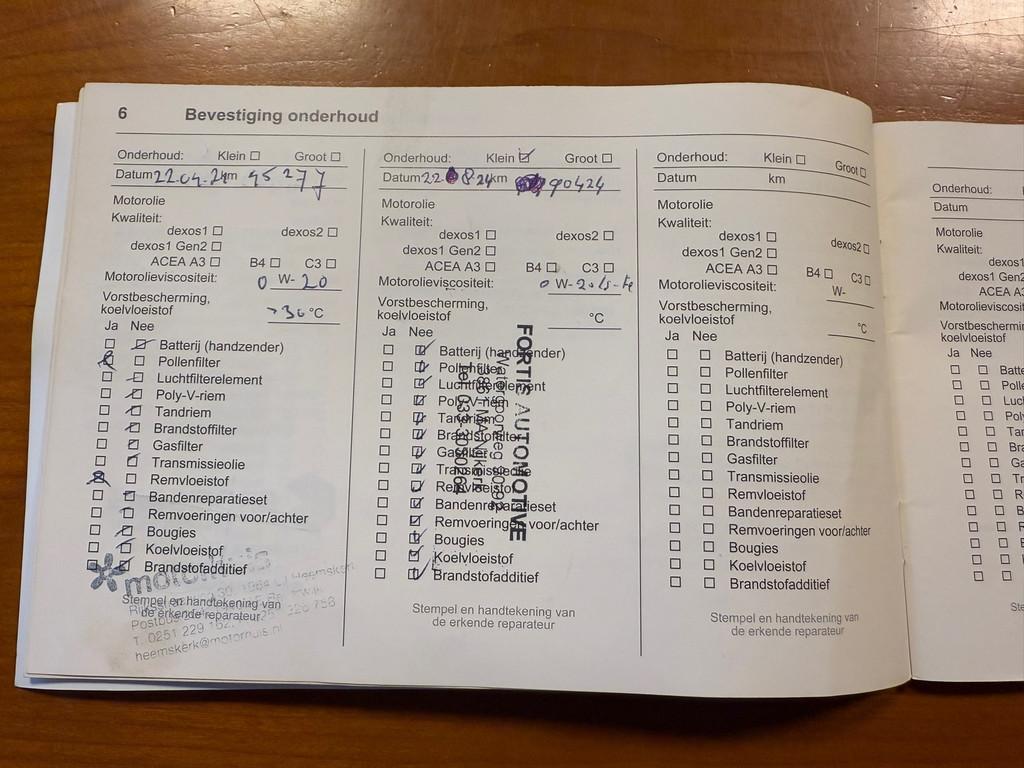 6 Bevestiging onderhoud
Onderhoud: Klein Groot
Datum 22.04.24 km 95277
Motorolie
Kwaliteit:
dexos1 dexos2
dexos1 Gen2
ACEA A3 B4 C3
Motorolieviscositeit: 0 W- 20
Vorstbescherming,
koelvloeistof >30 °C
Ja Nee
Batterij (handzender)
Pollenfilter
Luchtfilterelement
Poly-V-riem
Tandriem
Brandstoffilter
Gasfilter
Transmissieolie
Remvloeistof
Bandenreparatieset
Remvoeringen voor/achter
Bougies
Koelvloeistof
Brandstofadditief
Stempel en handtekening van
de erkende reparateur
motorhuis
Heemskerk
Postbus
T. 0251 229
heemskerk@motorhuis.nl
Onderhoud: Klein Groot
Datum 22 8 24 km 90424
Motorolie
Kwaliteit:
dexos1 dexos2
dexos1 Gen2
ACEA A3 B4 C3
Motorolieviscositeit: 0 W- 20
Vorstbescherming,
koelvloeistof °C
Ja Nee
Batterij (handzender)
Pollenfilter
Luchtfilterelement
Poly-V-riem
Tandriem
Brandstoffilter
Gasfilter
Transmissieolie
Remvloeistof
Bandenreparatieset
Remvoeringen voor/achter
Bougies
Koelvloeistof
Brandstofadditief
Stempel en handtekening van
de erkende reparateur
FORTIS AUTOMOTIVE
Nijkerk
Onderhoud: Klein Groot
Datum km
Motorolie
Kwaliteit:
dexos1 dexos2
dexos1 Gen2
ACEA A3 B4 C3
Motorolieviscositeit: W-
Vorstbescherming,
koelvloeistof °C
Ja Nee
Batterij (handzender)
Pollenfilter
Luchtfilterelement
Poly-V-riem
Tandriem
Brandstoffilter
Gasfilter
Transmissieolie
Remvloeistof
Bandenreparatieset
Remvoeringen voor/achter
Bougies
Koelvloeistof
Brandstofadditief
Stempel en handtekening van
de erkende reparateur
Onderhoud:
Datum
Motorolie
Kwaliteit:
dexos1
dexos1 Gen2
ACEA A3
Motorolieviscosit
Vorstbeschermin
koelvloeistof
Ja Nee
Batte
Polle
Luc
Po
Ta
Br
G
T
R
B